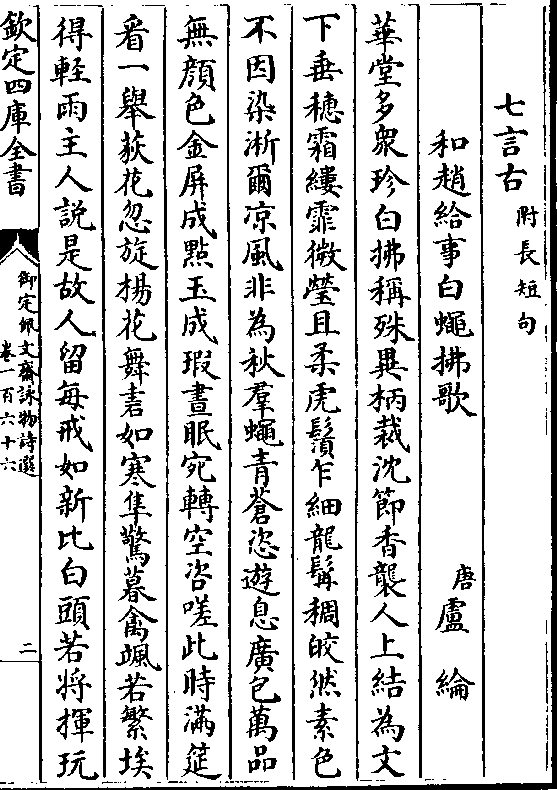 七言古附長短句
和趙給事白蠅拂歌 唐盧綸
華堂多衆珍白拂稱殊異柄裁沈節香襲人上結為文
下垂穗霜縷霏微瑩且柔虎鬚乍細龍髯稠皎然素色
不因染淅爾凉風非為秋羣蠅青蒼恣遊息廣包萬品
無顔色金屏成點玉成瑕晝眠宛轉空咨嗟此時滿筵
看一舉荻花忽旋楊花舞砉如寒隼驚暮禽颯若繁埃
得輕雨主人說是故人留每戒如新比白頭若將揮玩
欽定四庫全書
御定佩文齋詠物詩選
卷一百六十六
二